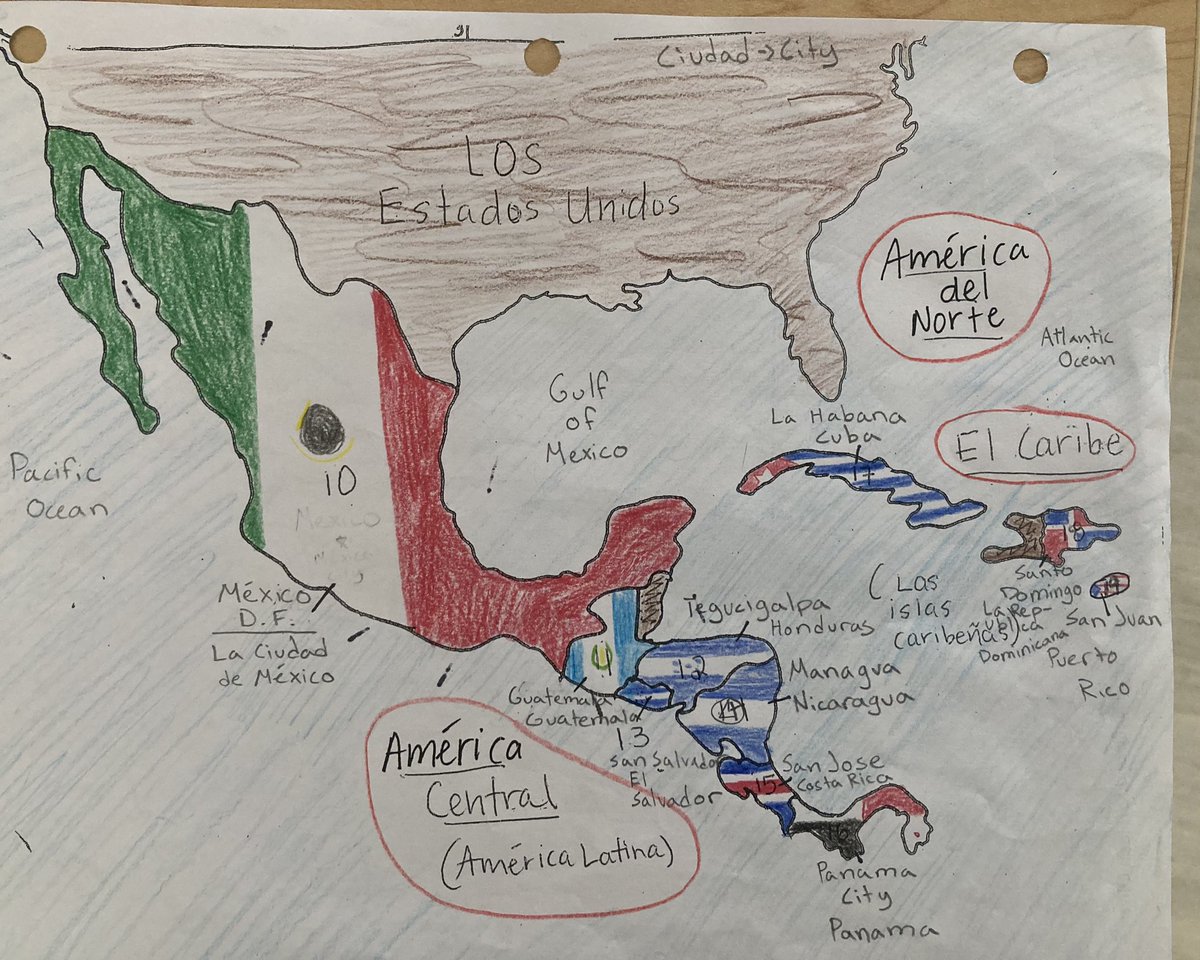 Ciudad → City
LOS
Estados Unidos
América
del
Norte
Atlantic
Ocean
Gulf
of
Mexico
La Habana
Cuba
17
El Caribe
Pacific
Ocean
10
Mexico
México
D.F.
La Ciudad
de México
Tegucigalpa
Honduras
12
(Las
islas
caribeñas)
18
Santo
Domingo
La Rep-
ublica
Dominicana
19
San Juan
Puerto
Rico
Guatemala
Guatemala
13
San Salvador
El
Salvador
Managua
Nicaragua
14
San Jose
Costa Rica
15
16
Panama
City
Panama
América
Central
(América Latina)